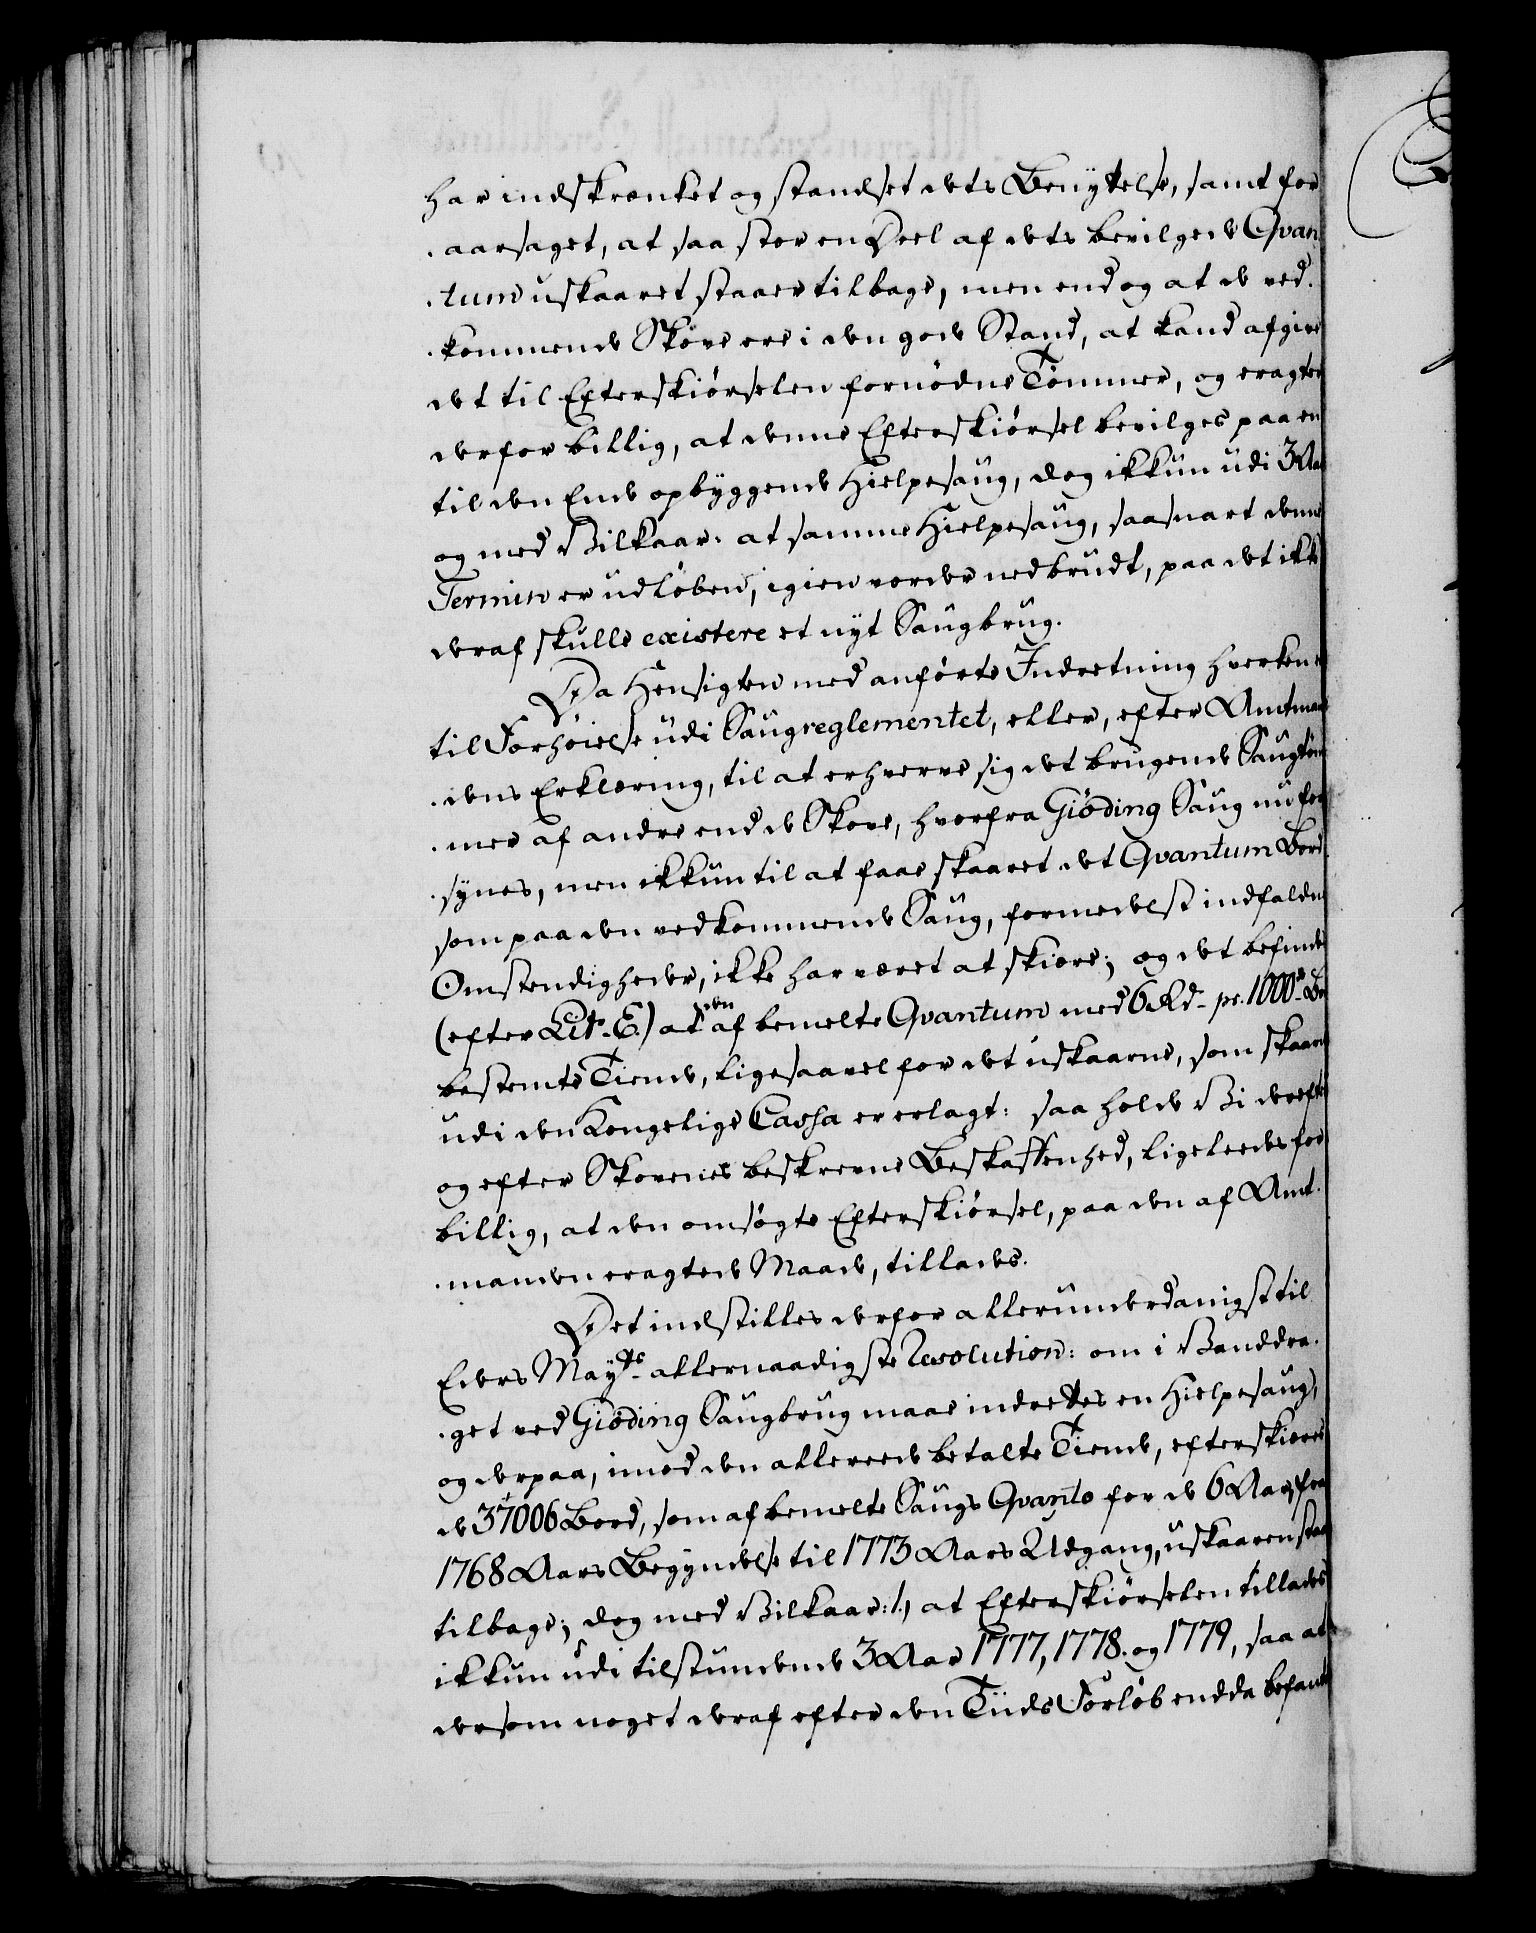 har indskrænket og standset dets Benyttelse, samt for
aarsaget, at saa stor en Deel af dets bevilgede Qvan
tum uskaaret staaer tilbage, men end og at de ved
kommende Skove ere i den gode Stand, at kand afgive
det til Efterskiørselen fornødne Tømmer, og eragter
derfor billig, at denne Efterskiørsel bevilges paa en
til den Ende opbyggende Hielpesaug, dog ikkun udi 3 Aar
og med Vilkaar: at samme Hielpesaug, saasnart denne
Termin er udløben, igien vorder nedbrudt, paa det ikke
deraf skulle existere et nyt Saugbrug.
Da Hensigten med anførte Indretning hverken er
til Forhøielse udi Saugreglementet, eller, efter Amtman
dens Erklæring, til at erhverve sig det brugende Saugtøm
mer af andre end de Skove, hvorfra Giøding Saug nu for
synes, men ikkun til at faae skaaret det Qvantum Bord
som paa den vedkommende Saug, formedelst indfaldne
Omstendigheder, ikke har været at skiære; og det befindes
(efter Lit. E.) at den af bemelte Qvantum med 6 Rd. pr. 1000de Bord
bestemte Tiende, ligesaavel for det uskaarne, som skaarne
udi den Kongelige Cassa er erlagt: saa holde Vi derefter
og efter Skovenes beskrevne Beskaffenhed, ligeleedes for
billig, at den omsøgte Efterskiørsel, paa den af Amt
manden eragtede Maade, tillades.
Det indstilles derfor allerunderdanigst til
Eders Mayts allernaadigste Resolution: om i Vanddra
get ved Giöding Saugbrug maae indrettes en Hielpesaug,
og derpaa, imod den allereede betalte Tiende, efterskiæres
de 37006 Bord, som af bemelte Saugs Qvanto for de 6 Aar, fra
1768 Aars Begyndelse til 1773 Aars Udgang, uskaaren staae
tilbage; dog med Vilkaar: 1.) at Efterskiørselen tillades
ikkun udi tilstundende 3 Aar 1777, 1778. og 1779, saa at
dersom noget deraf efter den Tiids Forløb endda befandt